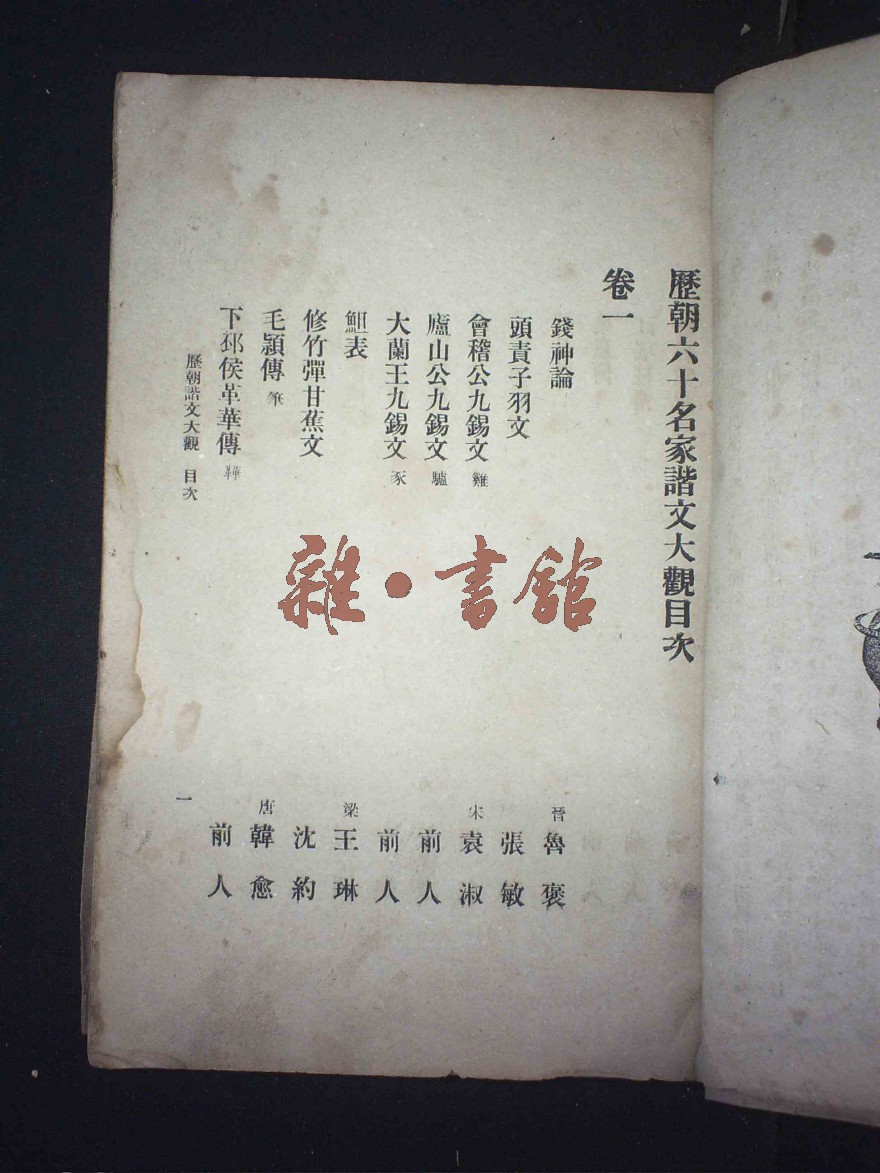 歷朝六十名家諧文大觀目次
卷一
錢神論 晉 魯褒
頭責子羽文 張敏
會稽公九錫文 雞 宋 袁淑
廬山公九錫文 驢 前人
大蘭王九錫文 豕 前人
䱉表 梁 王琳
修竹彈甘蕉文 沈約
毛穎傳 筆 唐 韓愈
下邳侯革華傳 鞾 前人
歷朝諧文大觀 目次 一
雜·書館